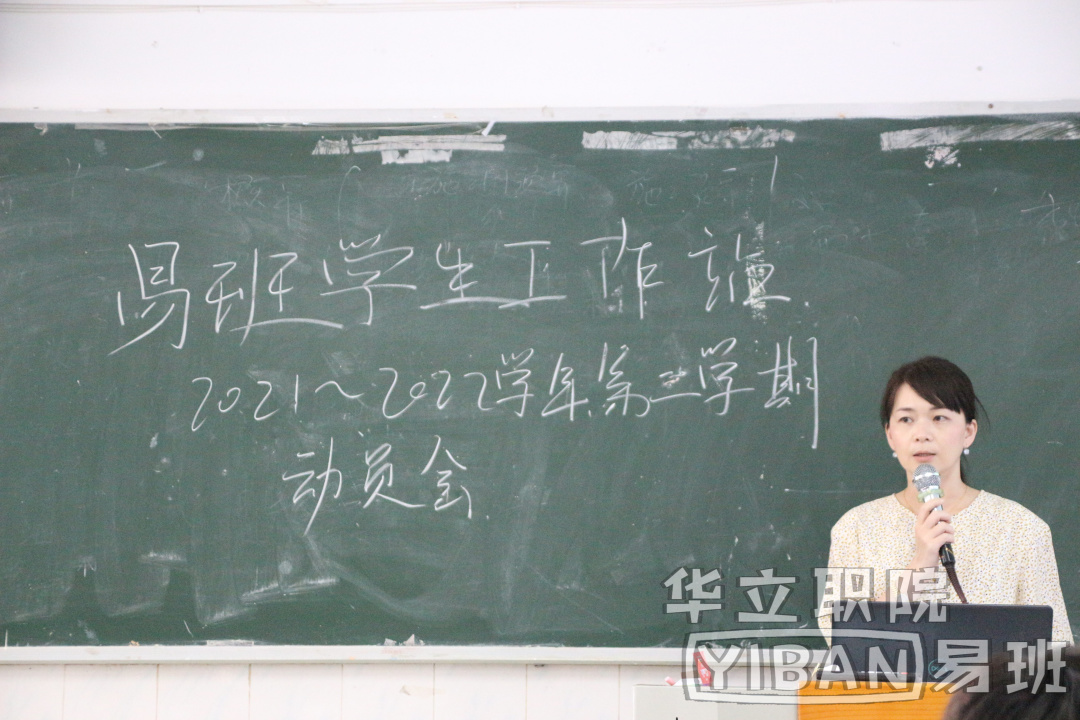 易班学生工作站
2021~2022学年第二学期
动员会
华立职院
YIBAN 易班